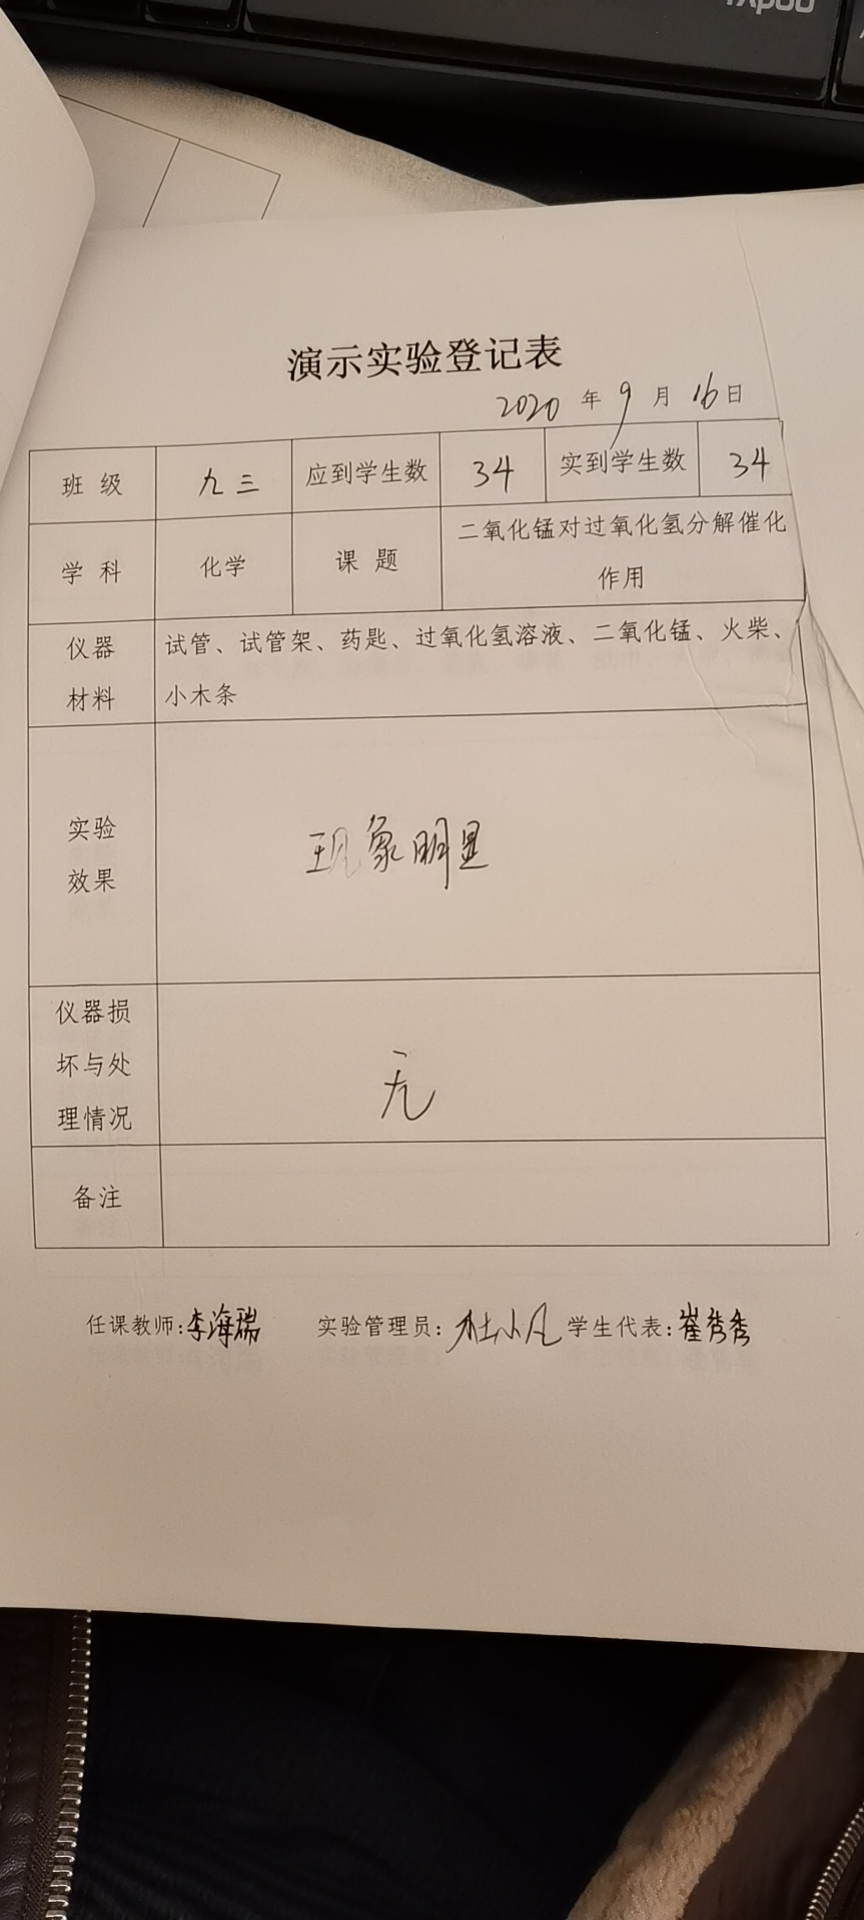 演示实验登记表
2020 年 9 月 16 日
班 级 九三 应到学生数 34 实到学生数 34
学 科 化学 课 题 二氧化锰对过氧化氢分解催化
作用
仪器
材料
试管、试管架、药匙、过氧化氢溶液、二氧化锰、火柴、
小木条
实验
效果
现象明显
仪器损
坏与处
理情况
无
备注
任课教师:李海瑞 实验管理员:杜小凡 学生代表:崔秀秀